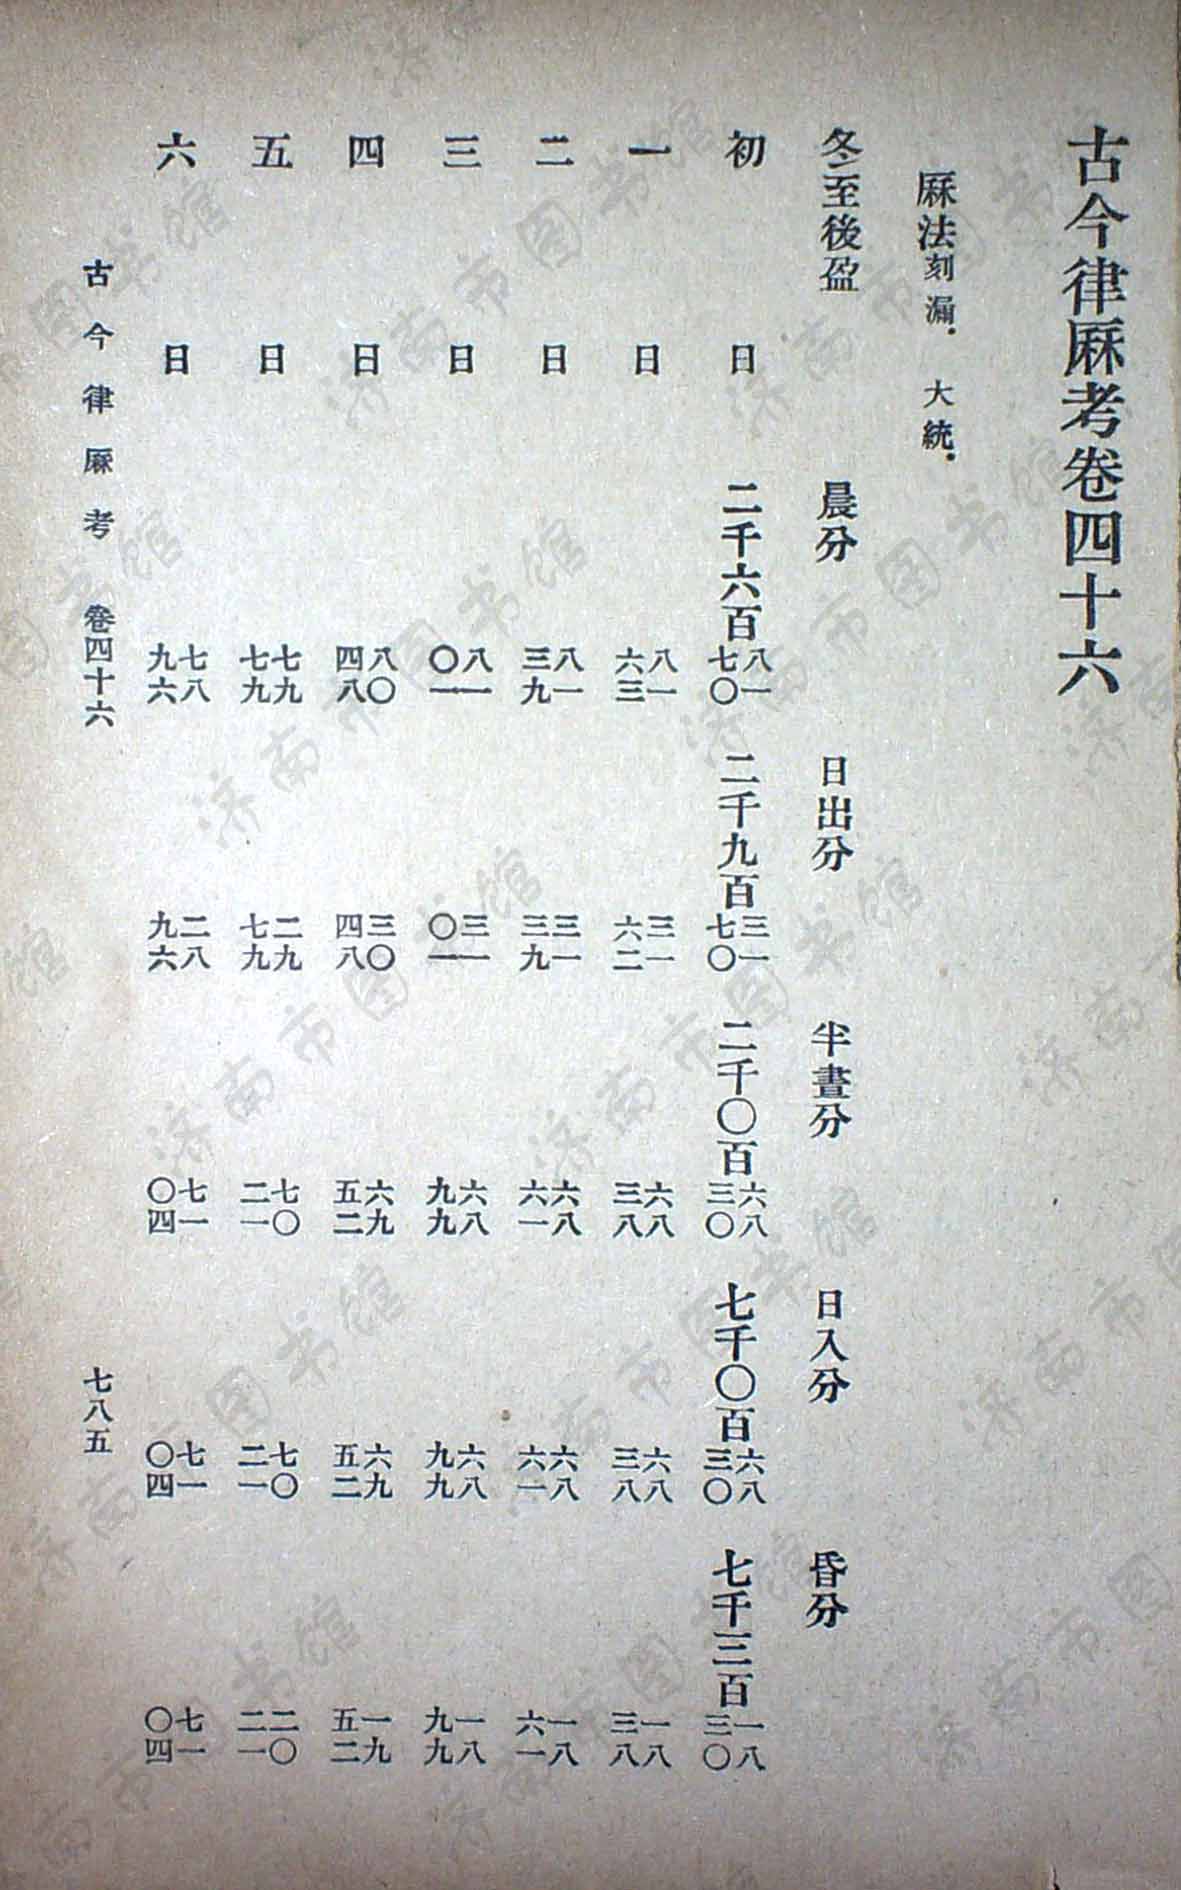 古今律厤考卷四十六
厤法刻漏．　大統．
冬至後盈　晨分　日出分　半晝分　日入分　昏分
初日　二千六百八一七〇　二千九百三一七〇　二千〇百六八三〇　七千〇百六八三〇　七千三百一八三〇
一日　八一六三　三一六二　六八三八　六八三八　一八三八
二日　八一三九　三一三九　六八六一　六八六一　一八六一
三日　八一〇一　三一〇一　六八九九　六八九九　一八九九
四日　八〇四八　三〇四八　六九五二　六九五二　一九五二
五日　七九七九　二九七九　七〇二一　七〇二一　二〇二一
六日　七八九六　二八九六　七一〇四　七一〇四　七一〇四
古今律厤考　卷四十六　七八五
济南市图书馆